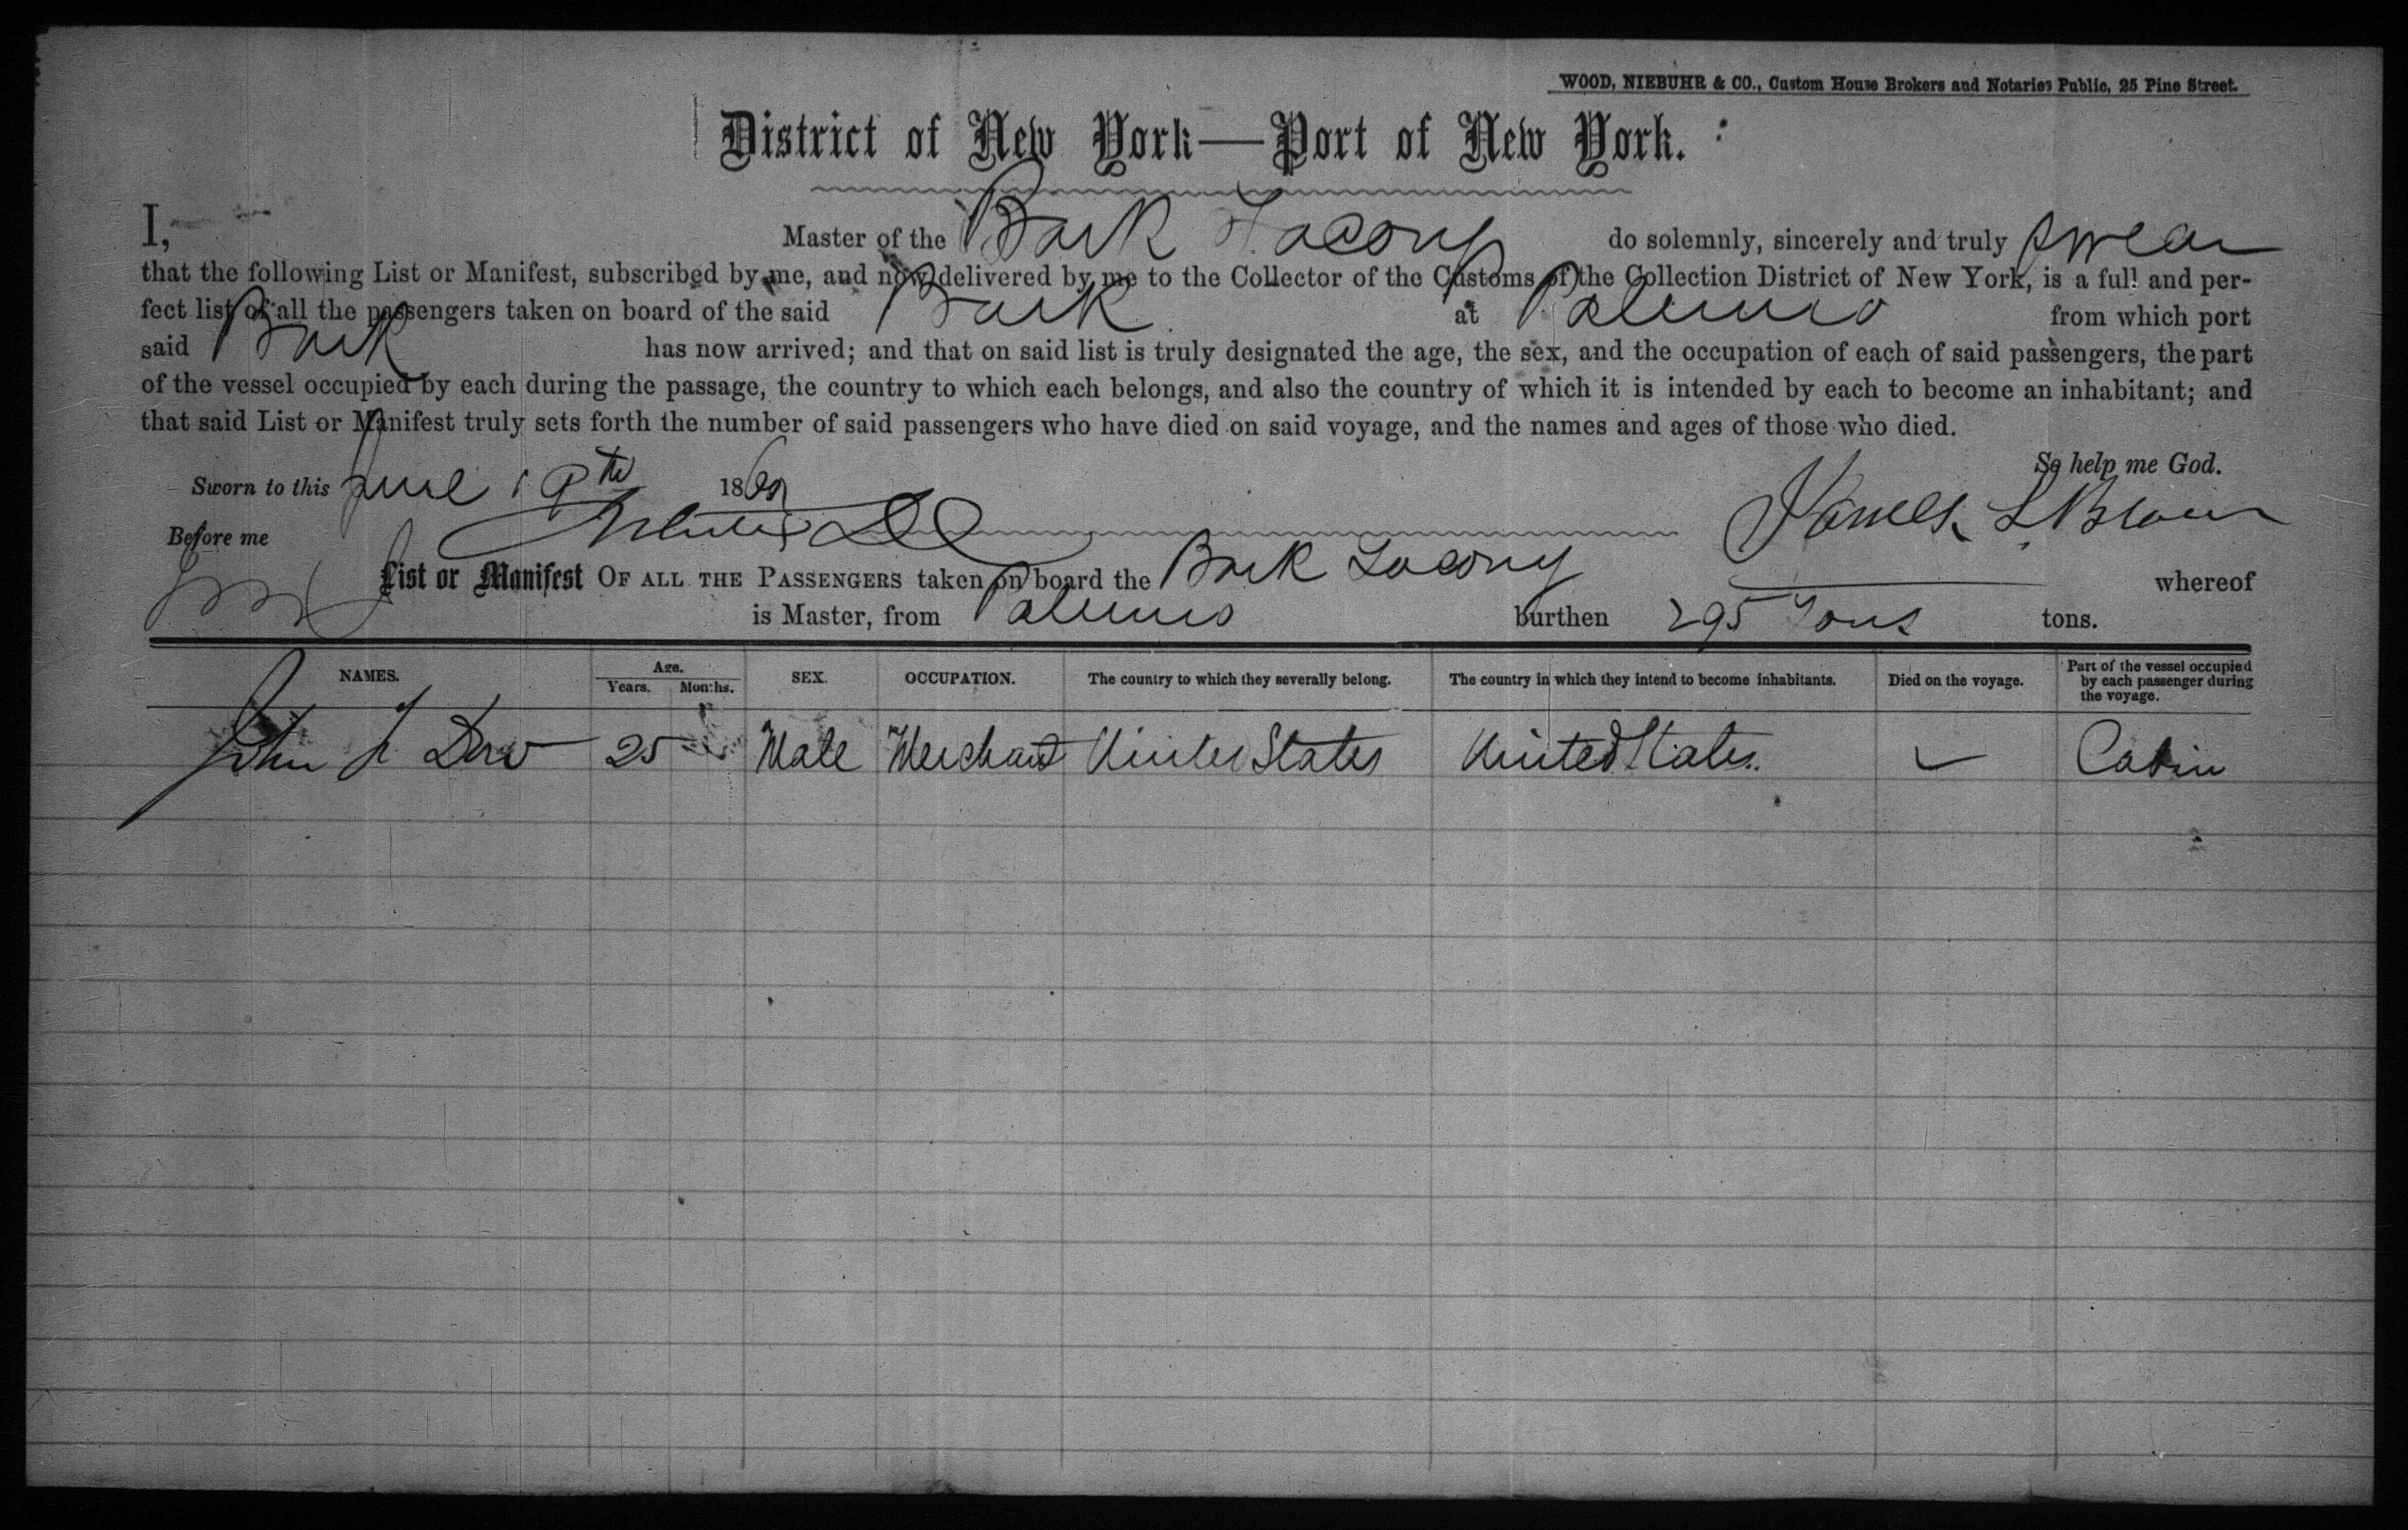 WOOD, NIEBUHR & CO., Custom House Brokers and Notaries Public, 25 Pine Street.
District of New York—Port of New York.
I, Master of the Bark Lacony do solemnly, sincerely and truly swear
that the following List or Manifest, subscribed by me, and now delivered by me to the Collector of the Customs of the Collection District of New York, is a full and per-
fect list of all the passengers taken on board of the said Bark at Palermo from which port
said Bark has now arrived; and that on said list is truly designated the age, the sex, and the occupation of each of said passengers, the part
of the vessel occupied by each during the passage, the country to which each belongs, and also the country of which it is intended by each to become an inhabitant; and
that said List or Manifest truly sets forth the number of said passengers who have died on said voyage, and the names and ages of those who died.
So help me God.
Sworn to this June 19th 1869
Before me James L. Brown
List or Manifest OF ALL THE PASSENGERS taken on board the Bark Lacony whereof
is Master, from Palermo burthen 295 Tons tons.
NAMES. Age. Years. Months. SEX. OCCUPATION. The country to which they severally belong. The country in which they intend to become inhabitants. Died on the voyage. Part of the vessel occupied by each passenger during the voyage.
John Dow 25 Male Merchant United States United States Cabin